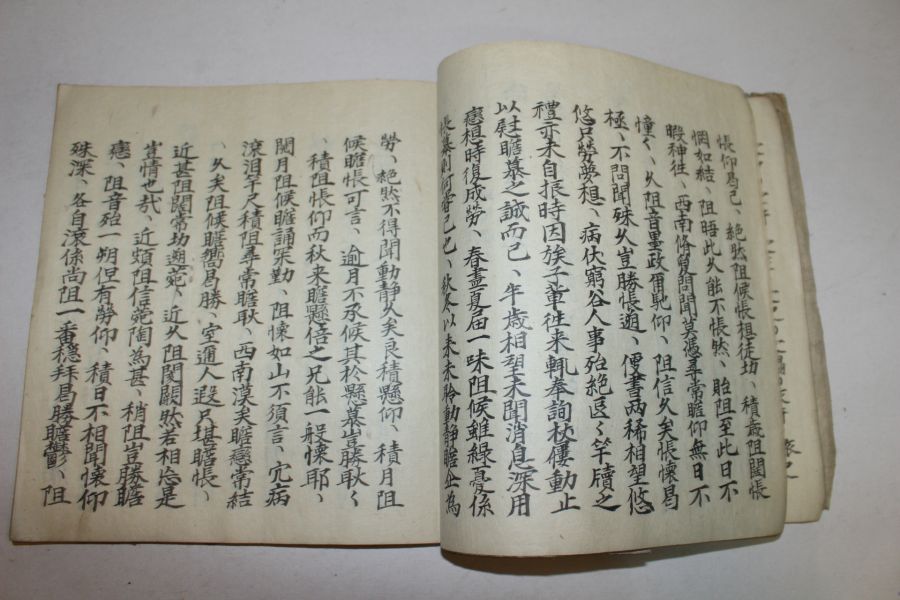 悵仰曷已、絶然阻候悵想徒切、積歲阻闊悵
惘如結、阻晤此久能不悵然、貽阻至此日不
暇神往、西南脩夐問聞莫憑尋常瞻仰無日不
憧〻、久阻音墨政爾馳仰、阻信久矣悵懷曷
極、不問聞殊久豈勝悵遡、便書兩稀相望悠
悠只勞夢想、病伏窮谷人事殆絶區〻竿牘之
禮亦未自振時因族子輩往来輒奉詢杖屨動止
以慰瞻慕之誠而已、半歲相望未聞消息深用
戀想時復成勞、春晝夏届一味阻候雖緣憂係
悵慕則何嘗已也、秋冬以来未聆動靜瞻企為
勞、絶然不得聞動靜久矣良積懸仰、積月阻
候瞻悵可言、逾月不承候其於縣慕豈勝耿〻
、積阻悵仰而秋来瞻懸倍之兄能一般懷耶、
閱月阻候瞻誦深勤、阻懷如山不須言、冗病
滾汨竿尺積阻尋常瞻耿、西南漠矣瞻戀常結
、久矣阻候瞻嚮曷勝、室邇人遐尺堪瞻悵、
近甚阻闊常切遡菀、近久阻闃闕然若相忘是
豈情也哉、近頗阻信菀陶為甚、稍阻豈勝瞻
戀、阻音殆一朔但有勞仰、積日不相聞懷仰
殊深、各自滾係尚阻一番穩拜曷勝瞻鬱、阻